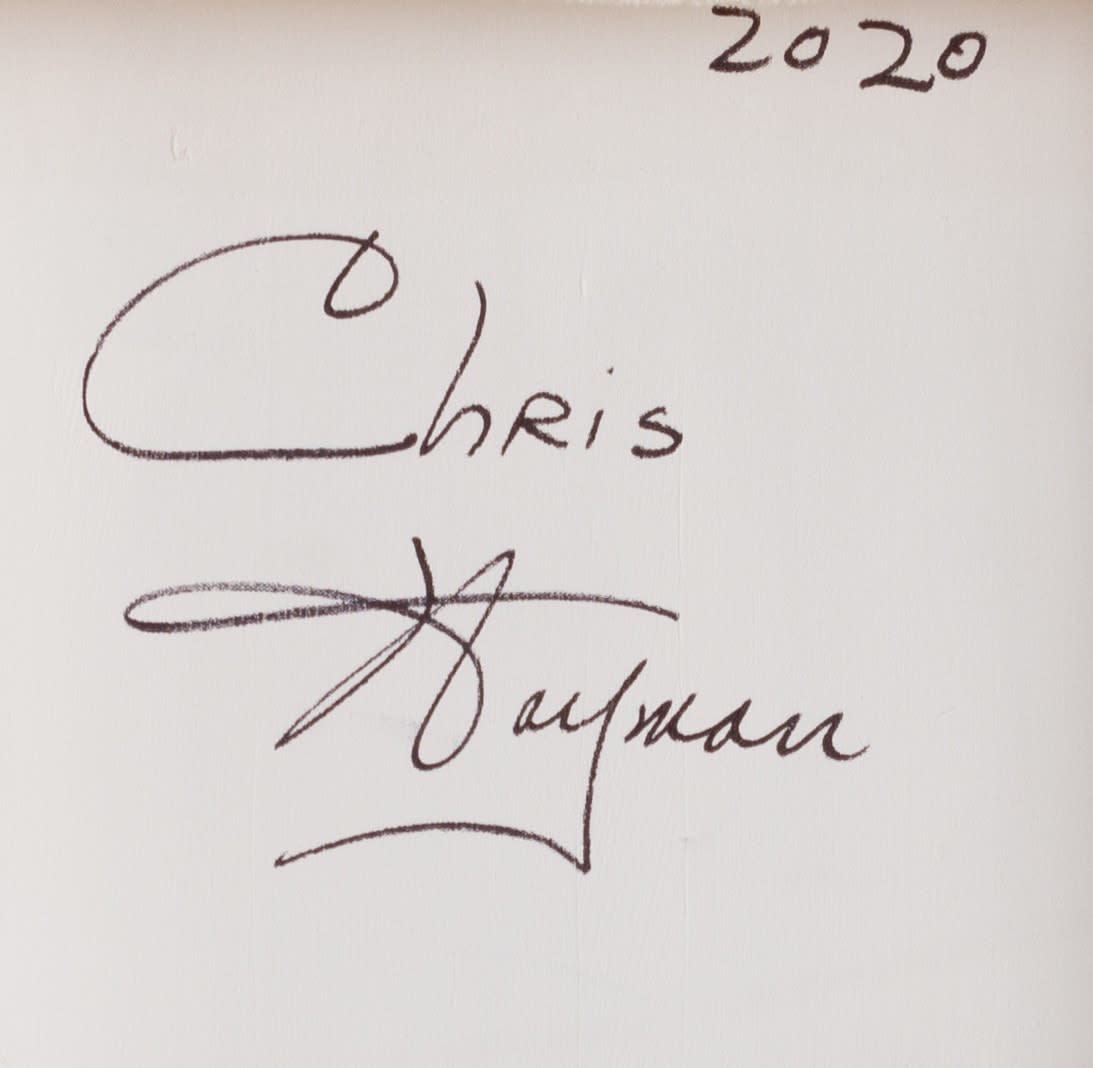 2020
Chris
Hayman